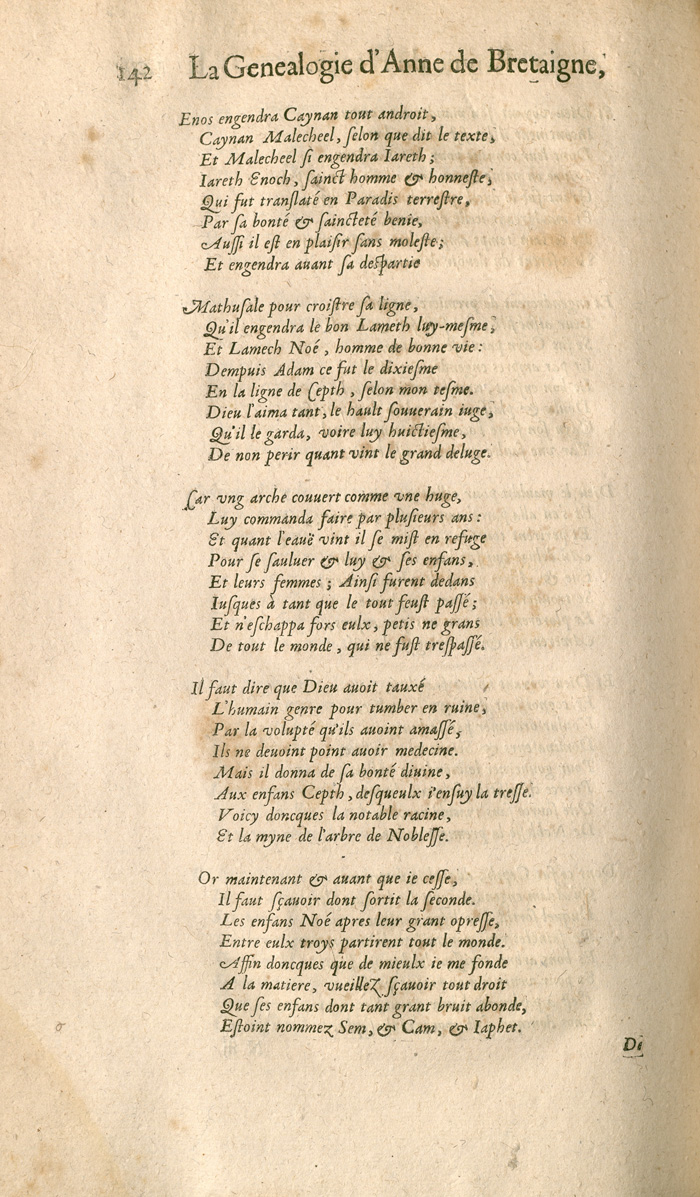 142 La Genealogie d'Anne de Bretaigne,
Enos engendra Caynan tout androit,
Caynan Malecheel, ſelon que dit le texte,
Et Malecheel ſi engendra Iareth;
Iareth Enoch, ſainct homme & honneſte,
Qui fut tranſlaté en Paradis terreſtre,
Par ſa bonté & ſaincteté benie,
Auſſi il eſt en plaiſir ſans moleſte;
Et engendra auant ſa deſpartie
Mathuſale pour croiſtre ſa ligne,
Qu'il engendra le bon Lameth luy-meſme,
Et Lamech Noé, homme de bonne vie:
Dempuis Adam ce fut le dixieſme
En la ligne de Cepth, ſelon mon teſme.
Dieu l'aima tant, le hault ſouuerain iuge,
Qu'il le garda, voire luy huictieſme,
De non perir quant vint le grand deluge.
Car vng arche couuert comme vne huge,
Luy commanda faire par pluſieurs ans:
Et quant l'eauë vint il ſe miſt en refuge
Pour ſe ſauluer & luy & ſes enfans,
Et leurs femmes; Ainſi furent dedans
Iuſques à tant que le tout feuſt paſſé;
Et n'eſchappa fors eulx, petis ne grans
De tout le monde, qui ne fuſt treſpaſſé.
Il faut dire que Dieu auoit tauxé
L'humain genre pour tumber en ruine,
Par la volupté qu'ils auoint amaſſé,
Ils ne deuoint point auoir medecine.
Mais il donna de ſa bonté diuine,
Aux enfans Cepth, deſqueulx s'enſuy la treſſe.
Voicy doncques la notable racine,
Et la myne de l'arbre de Nobleſſe.
Or maintenant & auant que ie ceſſe,
Il faut ſçauoir dont ſortit la ſeconde.
Les enfans Noé apres leur grant opreſſe,
Entre eulx troys partirent tout le monde.
Affin doncques que de mieulx ie me fonde
A la matiere, vueillez ſçauoir tout droit
Que ſes enfans dont tant grant bruit abonde,
Eſtoint nommez Sem, & Cam, & Iaphet.
De